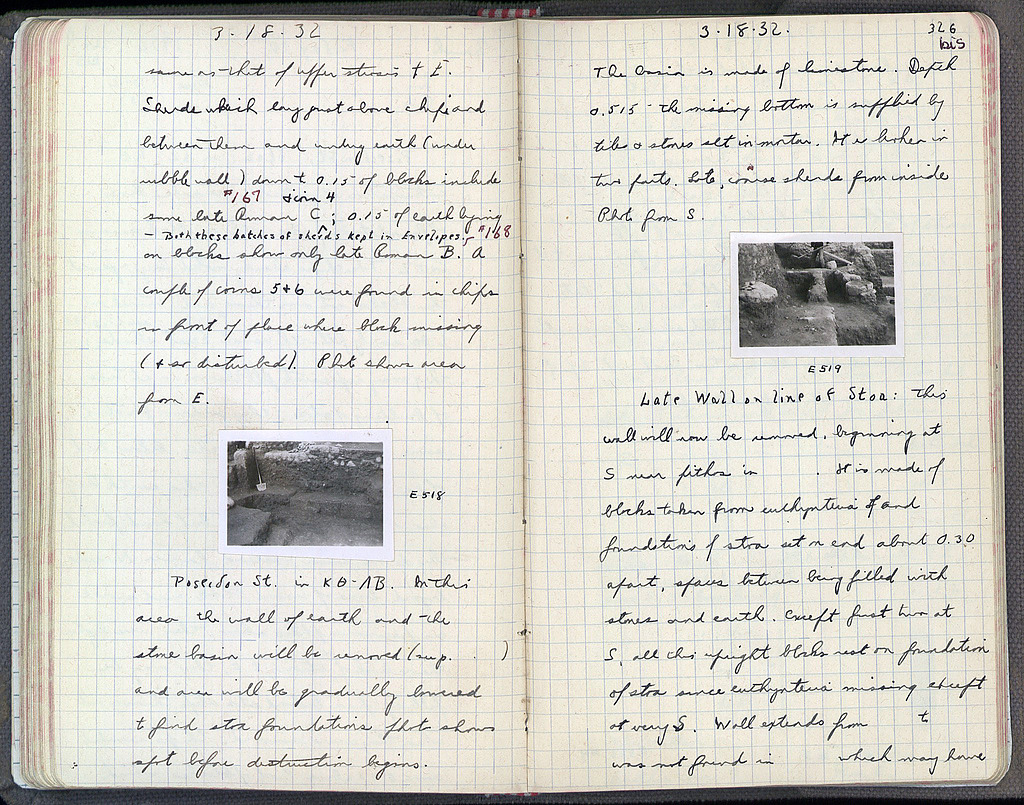 3-18-32
same as that of upper strosis to E.
Sherds which lay just above chips and
between them and under earth (under
rubble wall) down to 0.15 of blocks include
#167 & coin 4
some late Roman C; 0.15 of earth lying
- Both these batches of sherds kept in Envelopes. #168
on blocks show only late Roman B. A
couple of coins 5+6 were found in chips
in front of place where block missing
(& so disturbed). Phot shows area
from E.
E 518
Poseidon St. in ΚΘ-ΛΒ. In this
area the wall of earth and the
stone basin will be removed (sup. )
and area will be gradually lowered
to find stoa foundations. Phot shows
spot before destruction begins.
3-18-32.
326
bis
The basin is made of limestone. Depth
0.515 - the missing bottom is supplied by
tiles & stones set in mortar. It is broken in
two parts. Late, coarse sherds from inside
Phot from S.
E 519
Late Wall on line of Stoa: This
wall will now be removed, beginning at
S near pithos in . It is made of
blocks taken from euthynteria of and
foundations of stoa set on end about 0.30
apart, spaces between being filled with
stones and earth. Except first two at
S, all the upright blocks rest on foundation
of stoa since euthynteria missing except
at very S. Wall extends from to
was not found in which may have